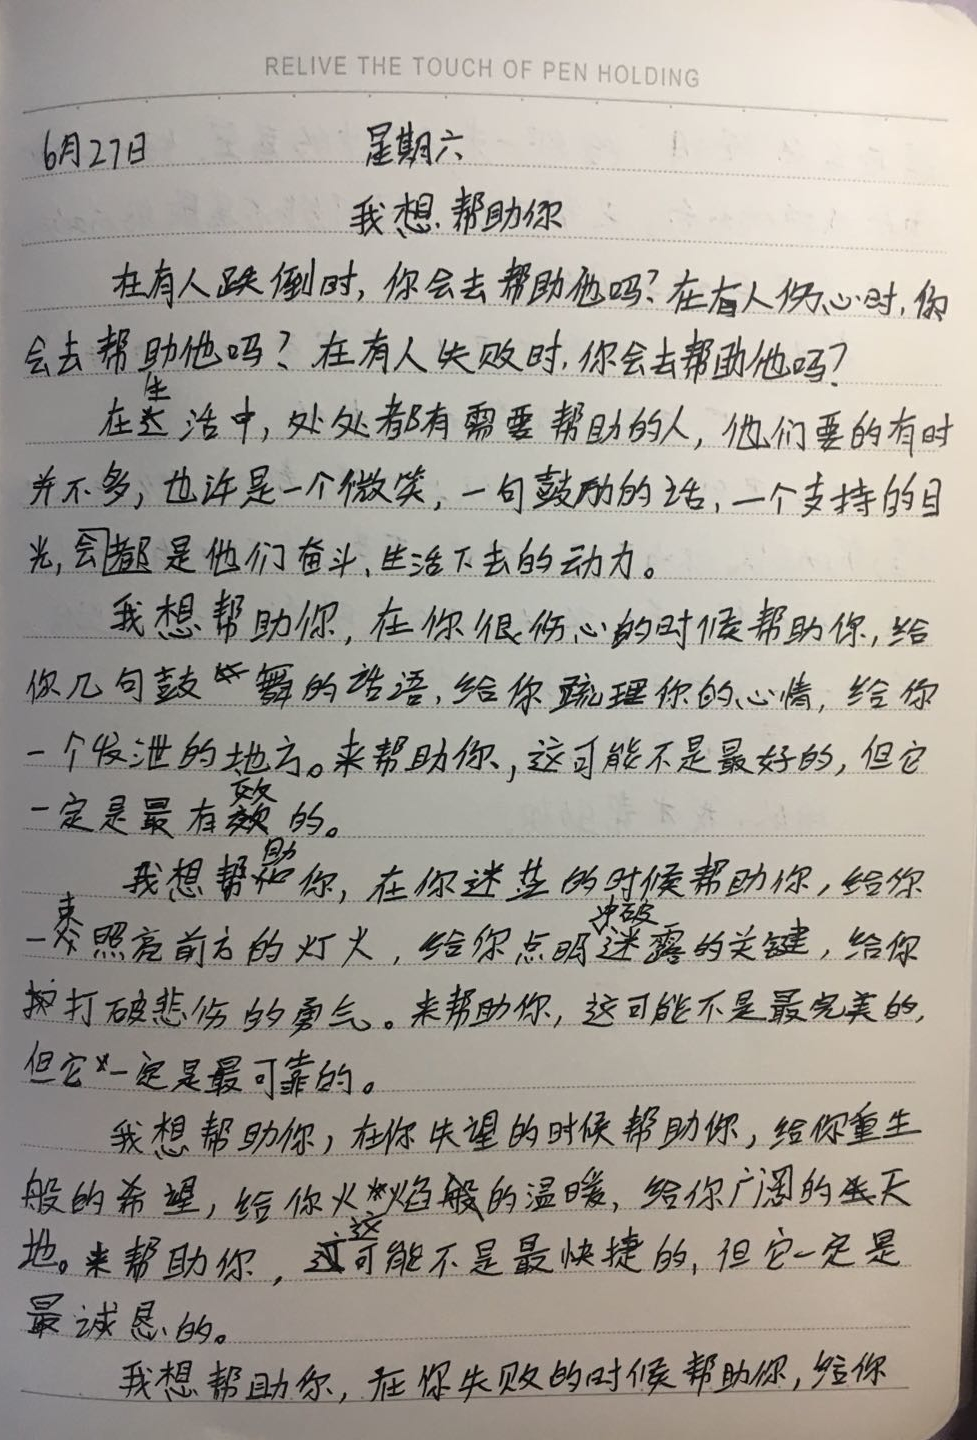 RELIVE THE TOUCH OF PEN HOLDING
6月27日 星期六
我想帮助你
在有人跌倒时,你会去帮助他吗?在有人伤心时,你
会去帮助他吗?在有人失败时,你会去帮助他吗?
在生活中,处处都有需要帮助的人,他们要的有时
并不多,也许是一个微笑,一句鼓励的话,一个支持的目
光,会都是他们奋斗、生活下去的动力。
我想帮助你,在你很伤心的时候帮助你,给
你几句鼓舞的话语,给你疏理你的心情,给你
一个发泄的地方。来帮助你,这可能不是最好的,但它
一定是最有效的。
我想帮助你,在你迷茫的时候帮助你,给你
一束照亮前方的灯火,给你点明冲破迷雾的关键,给你
打破悲伤的勇气。来帮助你,这可能不是最完美的,
但它一定是最可靠的。
我想帮助你,在你失望的时候帮助你,给你重生
般的希望,给你火焰般的温暖,给你广阔的天
地。来帮助你,这可能不是最快捷的,但它一定是
最诚恳的。
我想帮助你,在你失败的时候帮助你,给你